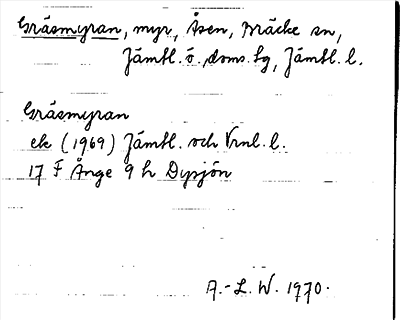 Gräsmyran, myr, Åsen, Bräcke sn,
Jämtl. ö. doms. sg, Jämtl. l.
Gräsmyran
ek (1969) Jämtl. och Vrnl. l.
17 F Ånge 9 h Dysjön
A.-L. W. 1970.